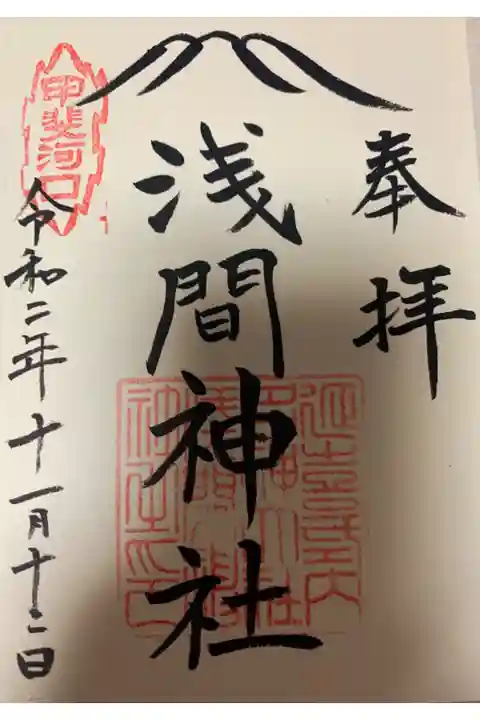 奉拝
浅間神社
甲斐河口
令和二年十一月十二日